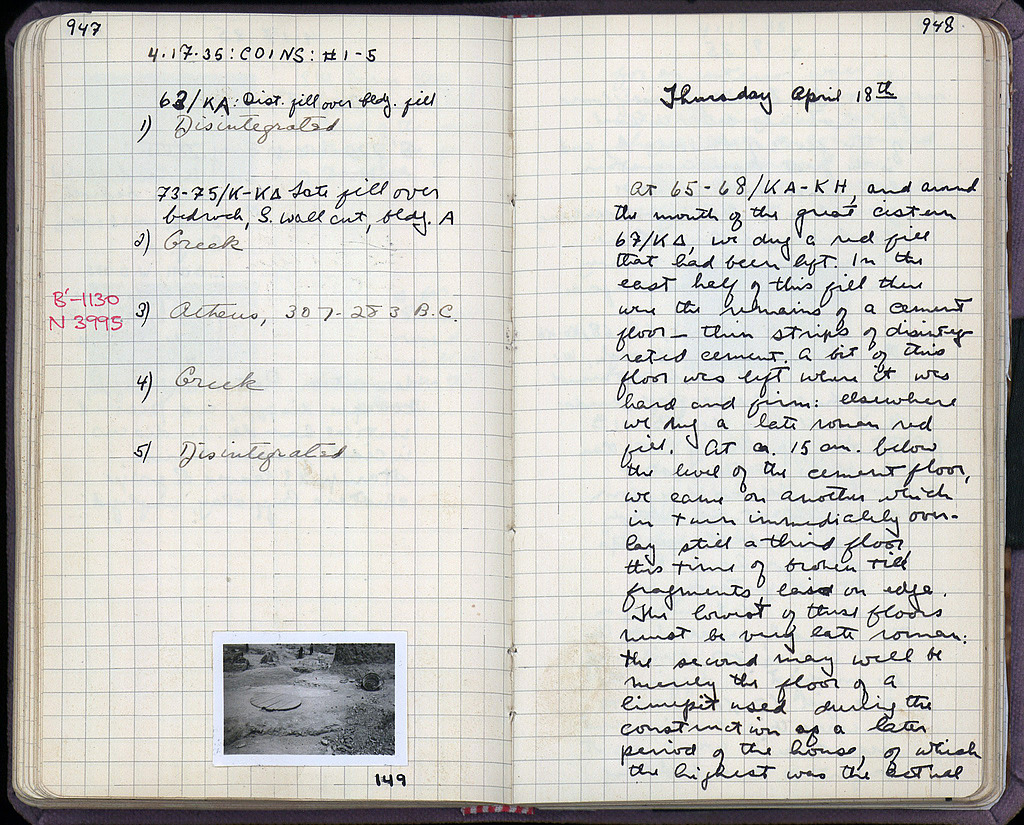 947
4.17.35: COINS: #1-5
63/KA: Dist. fill over bldg. fill
1) Disintegrated
73-75/K-KΔ Late fill over
bedrock, S. wall cut, bldg. A
2) Greek
B'-1130
N 3995
3) Athens, 307-283 B.C.
4) Greek
5) Disintegrated
149
948
Thursday April 18th
At 65-68/KA-KH, and around
the mouth of the great cistern
67/KΔ, we dug a red fill
that had been left. In the
east half of this fill there
were the remains of a cement
floor — thin strips of disinteg-
rated cement. A bit of this
floor was left where it was
hard and firm: elsewhere
we dug a late roman red
fill. At ca. 15 cm. below
the level of the cement floor,
we came on another which
in turn immediately over-
lay still a third floor,
this time of broken tile
fragments laid on edge.
The lowest of these floors
must be very late roman:
the second may well be
merely the floor of a
limepit used during the
construction of a later
period of the house, of which
the highest was the actual